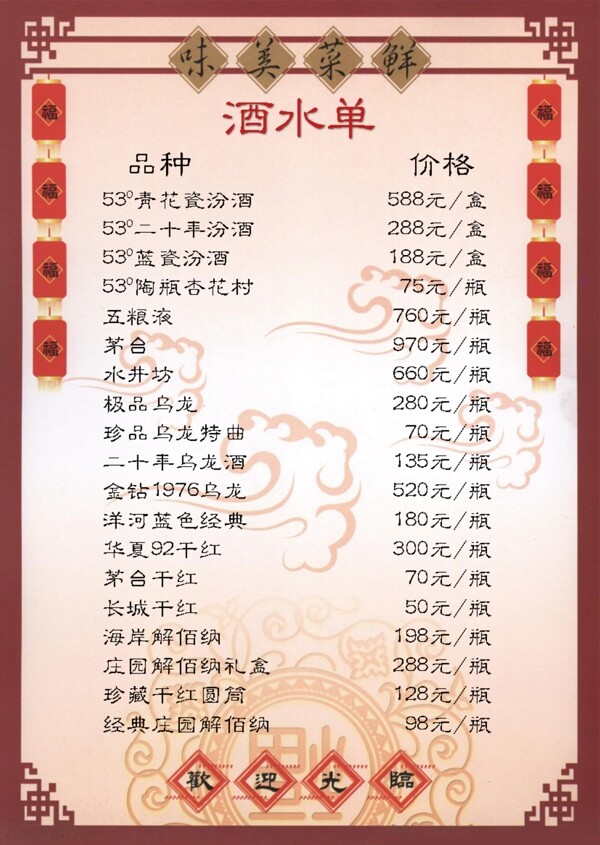 味美菜鲜
酒水单
品种 价格
福 福
53⁰青花瓷汾酒 588元/盒
53⁰二十年汾酒 288元/盒
福 福
53⁰蓝瓷汾酒 188元/盒
福 福
53⁰陶瓶杏花村 75元/瓶
五粮液 760元/瓶
茅台 970元/瓶
福 福
水井坊 660元/瓶
极品乌龙 280元/瓶
珍品乌龙特曲 70元/瓶
二十年乌龙酒 135元/瓶
金钻1976乌龙 520元/瓶
洋河蓝色经典 180元/瓶
华夏92干红 300元/瓶
茅台干红 70元/瓶
长城干红 50元/瓶
海岸解佰纳 198元/瓶
庄园解佰纳礼盒 288元/瓶
珍藏干红圆筒 128元/瓶
经典庄园解佰纳 98元/瓶
歡迎光臨